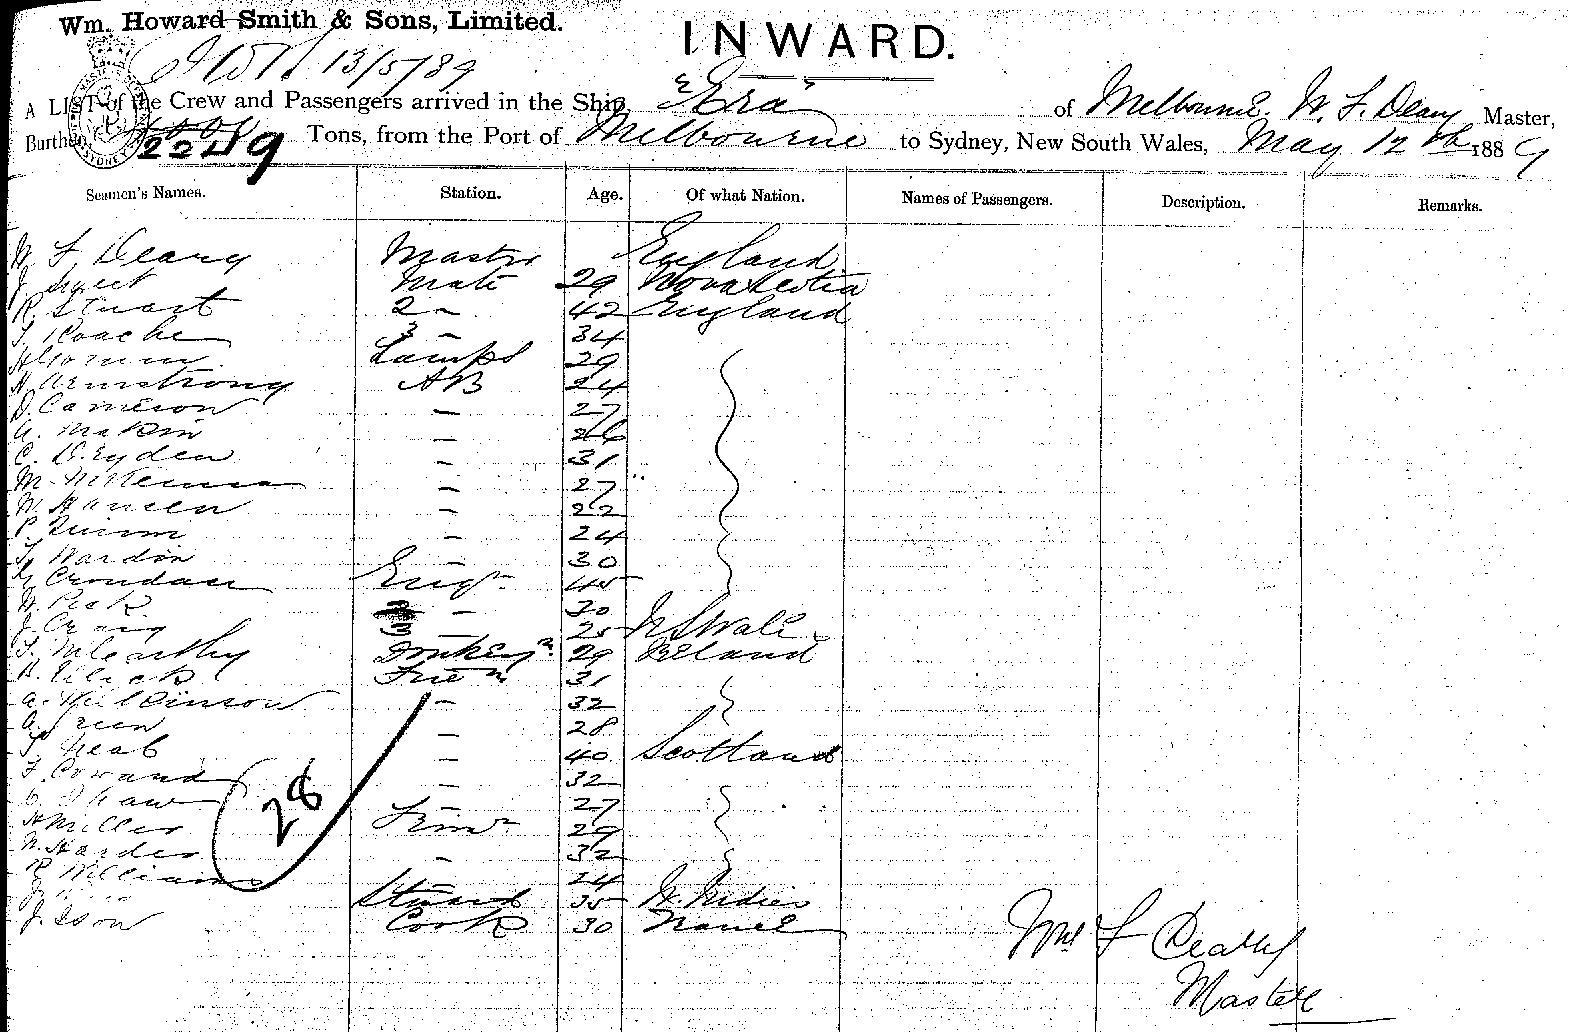 Wm. Howard Smith & Sons, Limited.
INWARD.
13/5/89
A LIST of the Crew and Passengers arrived in the Ship, "Era" of Melbourne, W. F. Deary Master,
Burthen 2249 Tons, from the Port of Melbourne to Sydney, New South Wales, May 12th 1889
Seamen's Names. Station. Age. Of what Nation. Names of Passengers. Description. Remarks.
W. F. Deary Master England
J. Mate 29 Nova Scotia
R. Stuart 2 - 42 England
T. Roache 3 - 34
Lamps 29
H. Armstrong AB 24
D. Cameron - 27
A. Makin - 26
C. Dryden - 31
M. - 27
W. Hansen - 22
P. Quinn - 24
T. Wardin 30
Engr 45
W. Peck - 30
J. Craig 3 - 25 N S Wales
T. McCarthy Donkeyn 29 Ireland
Firen 31
A. Wilkinson - 32
A. Green - 28
T. Neal - 40 Scotland
F. Coward - 32
C. Shaw - 27
H. Miller Trimr 29
W. Harder - 32
R. Williams 24
Steward 35 W. Indies
J. Ison Cook 30 France
28
Wm F Deary
Master